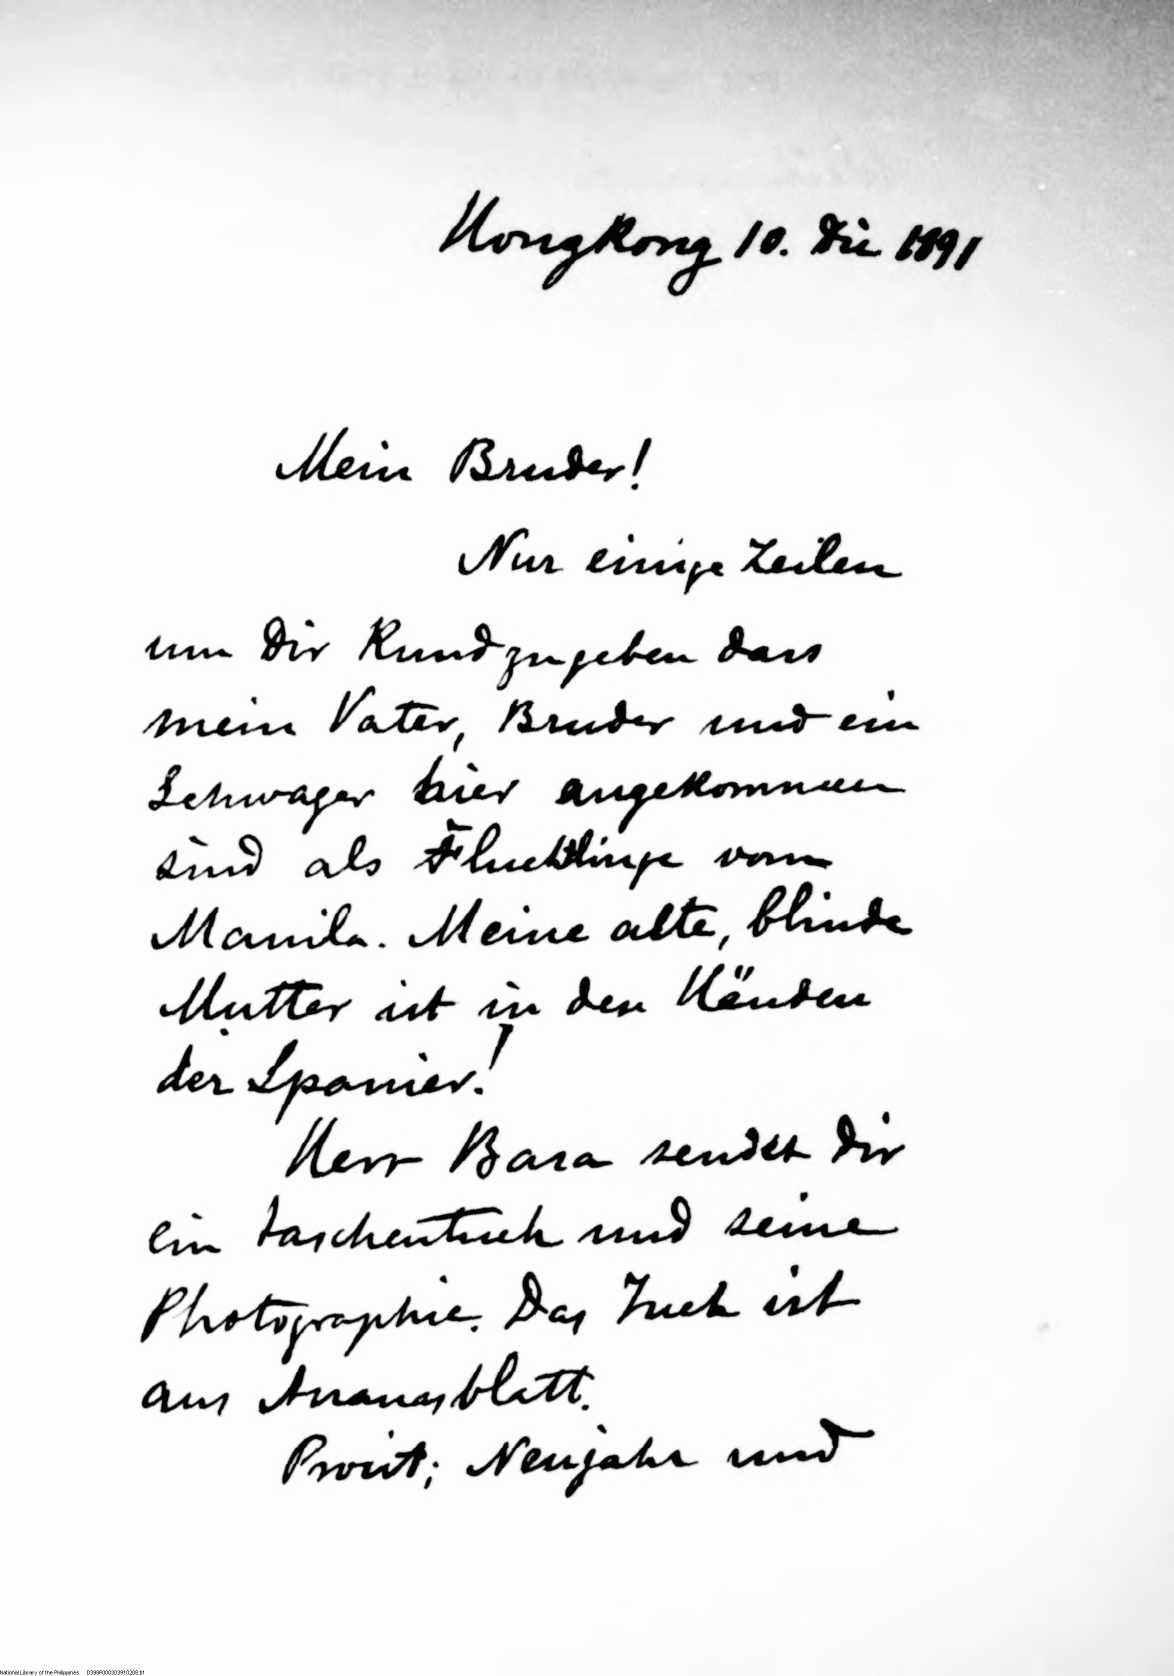 Hongkong 10. Dic 1891
Mein Bruder!
Nur einige Zeilen
um Dir Kundzugeben dass
mein Vater, Bruder und ein
Schwager hier angekommen
sind als Fluchtlinge vom
Manila. Meine alte, blinde
Mutter ist in den Händen
der Spanier!
Herr Basa sendet Dir
ein Taschentuch und seine
Photographie. Das Tuch ist
aus Ananasblatt.
Prosit; Neujahr und
National Library of the Philippines